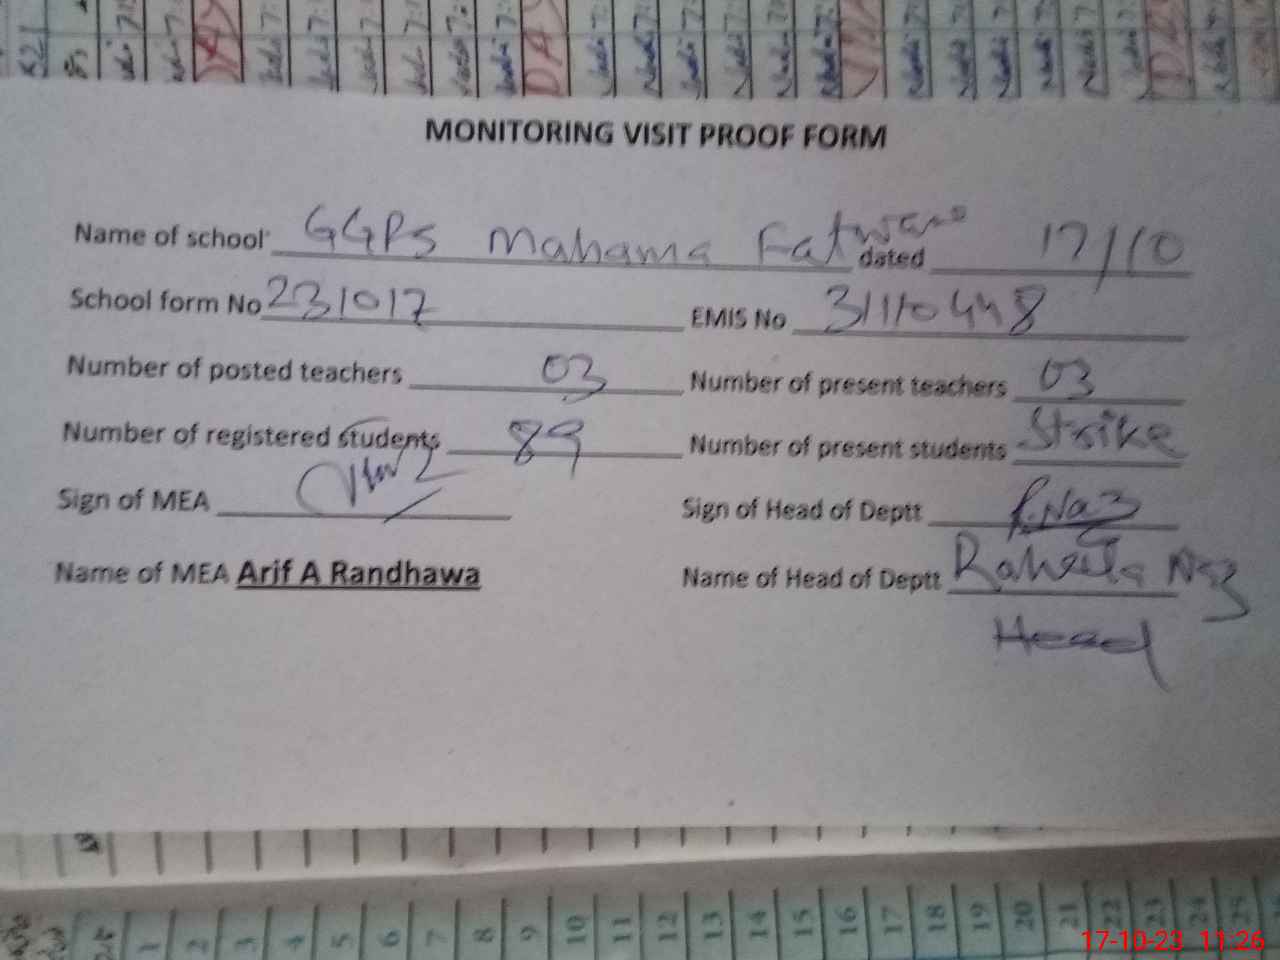 MONITORING VISIT PROOF FORM
Name of school GGPS Mahama Fatwana dated 17/10
School form No 231017 EMIS No 31110448
Number of posted teachers 03 Number of present teachers 03
Number of registered students 89 Number of present students Strike
Sign of MEA Sign of Head of Deptt R.Naz
Name of MEA Arif A Randhawa Name of Head of Deptt Raheela Naz
Head
1 2 3 4 5 6 7 8 9 10 11 12 13 14 15 16 17 18 19 20 21 22 23 24 25
17-10-23 11:26